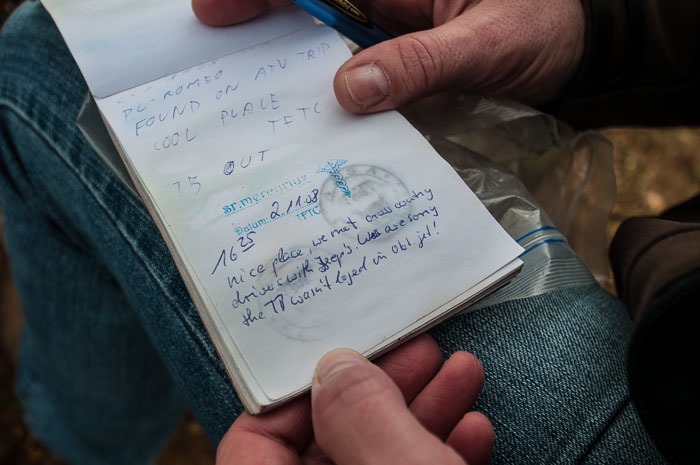 DC-ROMEO
FOUND ON ATV TRIP
COOL PLACE TFTC
73 OUT
sr.mercurius
Datum: 2.11.08
TFTC
16 25
nice place, we met crosscountry
drivers with Jeep's. Was awesome
the TB wasn't loged in obl. jet!